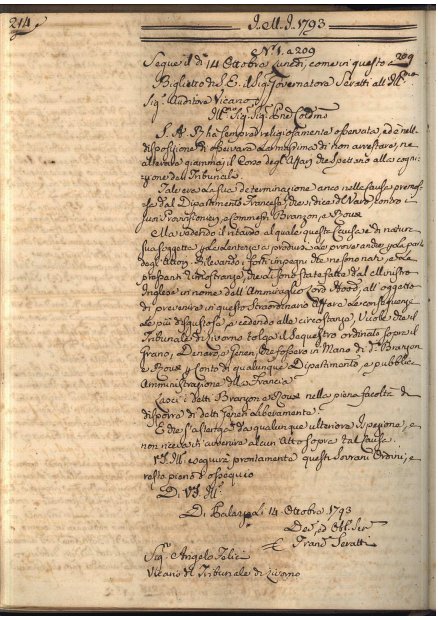 214
J.M.J. 1793
N.º 1. a 209
Segue il dì 14 Ottobre Lunedì, come in questo a 209
Biglietto di S.E. il Sig. Governatore Seratti all'Ill.mo
Sig. Auditore Vicario
Ill.mo Sig. Sig. Pne Colmo
S.A.R. ha sempre religiosamente osservata, ed è nella
disposizione di osservare la massima di non arrestare, ne
alterare giammai il Corso degli Affari che spettano alla cogni
zione dei Tribunali
Tale era la sua determinazione anco nella causa promos
sa dal Dipartimento Francese, che si dice del Varo contro i
suoi Provisionieri, e commessi Branzon, e Roux
Ma vedendo il ritardo al quale questa Causa è di natura
sua soggetta per la lentezza a produrre le prove
degli Attori, rilevando i forti impegni che ne sono nati, e le
pressanti rimostranze, che li sono state fatte dal Ministro
Inglese in nome dell'Ammiraglio Lord Hood, all'oggetto
di prevenire in questo straordinario Affare le conseguenze
le più disgustose, e cedendo alle circostanze, Vuole che il
Tribunale di Livorno tolga il Sequestro ordinato sopra il
Grano, Denaro, e Generi che fossero in Mano di d.i Branzon
e Roux per Conto di qualunque Dipartimento, e pubblica
Amministrazione della Francia
Lasci i detti Branzon e Roux nella piena facoltà di
disporre di detti Generi liberamente.
E che s'astenga da qualunque ulteriore Ispezione, e
non riceva in avvenire alcun Atto sopra tal causa.
VS. Ill. eseguirà prontamente questi Sovrani Ordini, e
resto pieno d'ossequio
Di VS. Ill.
Di Palazzo Li 14 Ottobre 1793
Dev. ed Obb. Ser.
Franc. Seratti
Sig. Angelo Felici
Vicario del Tribunale di Livorno